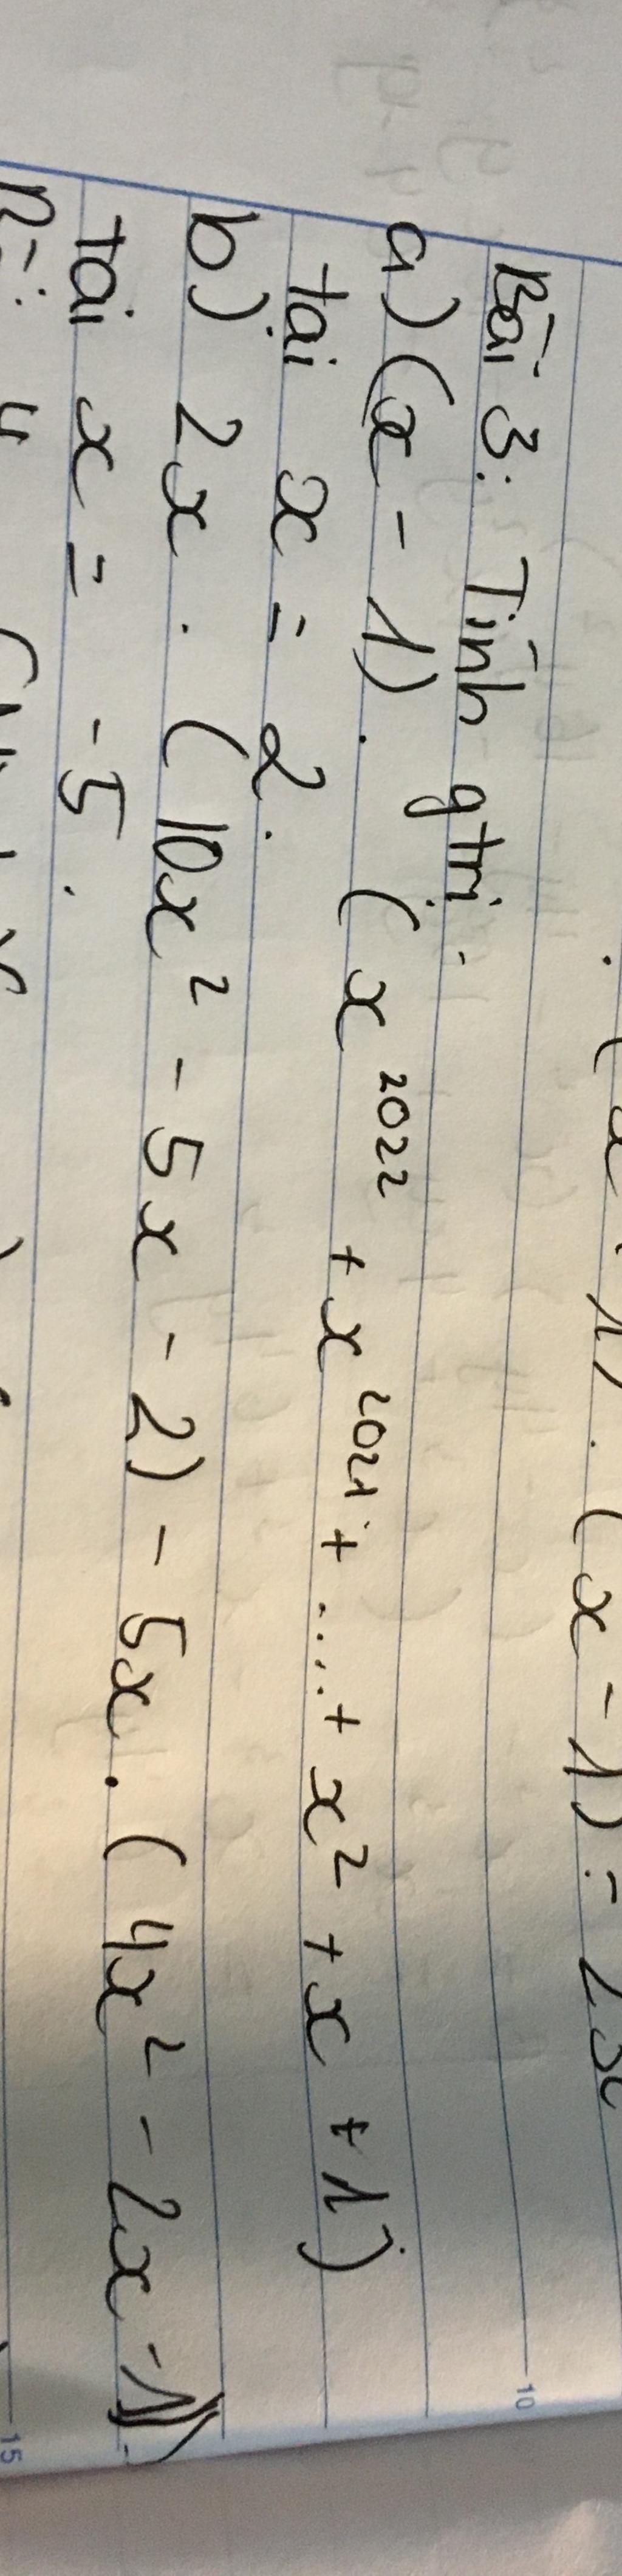 . (x + 1) . (x - 1) = 2x
Bài 3: Tính gtrị:
a) (x - 1) . (x²⁰²² + x²⁰²¹ + .... + x² + x + 1)
tại x = 2.
b) 2x . (10x² - 5x - 2) - 5x . (4x² - 2x - 1)
tại x = -5.
10
15